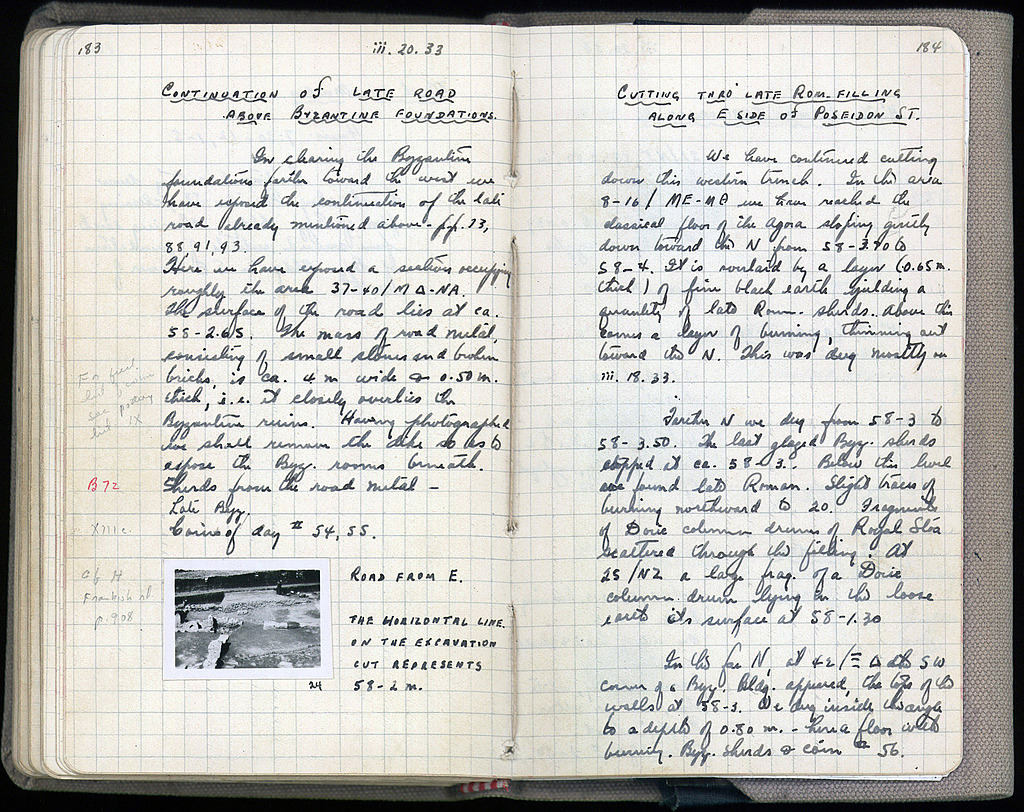 183
iii. 20. 33
CONTINUATION OF LATE ROAD
ABOVE BYZANTINE FOUNDATIONS.
In clearing the Byzantine
foundations farther toward the west we
have exposed the continuation of the late
road already mentioned above - pp. 73,
88, 91, 93.
Here we have exposed a section occupying
roughly the area 37-40/ΜΔ-ΝΑ.
The surface of the road lies at ca.
58-2.65. The mass of road metal,
consisting of small stones and broken
bricks, is ca. 4 m wide & 0.50 m.
thick, i.e. it closely overlies the
Byzantine ruins. Having photographed
we shall remove the dike so as to
expose the Byz. rooms beneath.
Sherds from the road metal -
Late Byz.
Coins of day # 54, 55.
see pottery
IX
B72
XIII c.
cf. H
Frankish
p. 908
ROAD FROM E.
THE HORIZONTAL LINE
ON THE EXCAVATION
CUT REPRESENTS
58-2 m.
24
184
CUTTING THRO' LATE ROM. FILLING
ALONG E SIDE OF POSEIDON ST.
We have continued cutting
down this western trench. In the area
8-16/ ΜΕ-ΜΘ we have reached the
classical floor of the Agora sloping gently
down toward the N from 58-3.70 to
58-4. It is overlaid by a layer (0.65 m.
thick) of fine black earth yielding a
quantity of late Rom. sherds. Above this
comes a layer of burning, thinning out
toward the N. This was dug mostly on
iii. 18. 33.
Farther N we dug from 58-3 to
58-3.50. The last glazed Byz. sherds
stopped at ca. 58-3. Below this level
are found late Roman. Slight traces of
burning northward to 20. Fragments
of Doric column drums of Royal Stoa
scattered through the filling. At
25/ΝΖ a large frag. of a Doric
column drum lying in the loose
earth its surface at 58-1.30
In the far N, at 42/ΞΔ the SW
corner of a Byz. Bldg. appeared, the tops of the
walls at 58-3. We dug inside the angle
to a depth of 0.80 m. - here a floor with
burning. Byz. sherds & coin # 56.